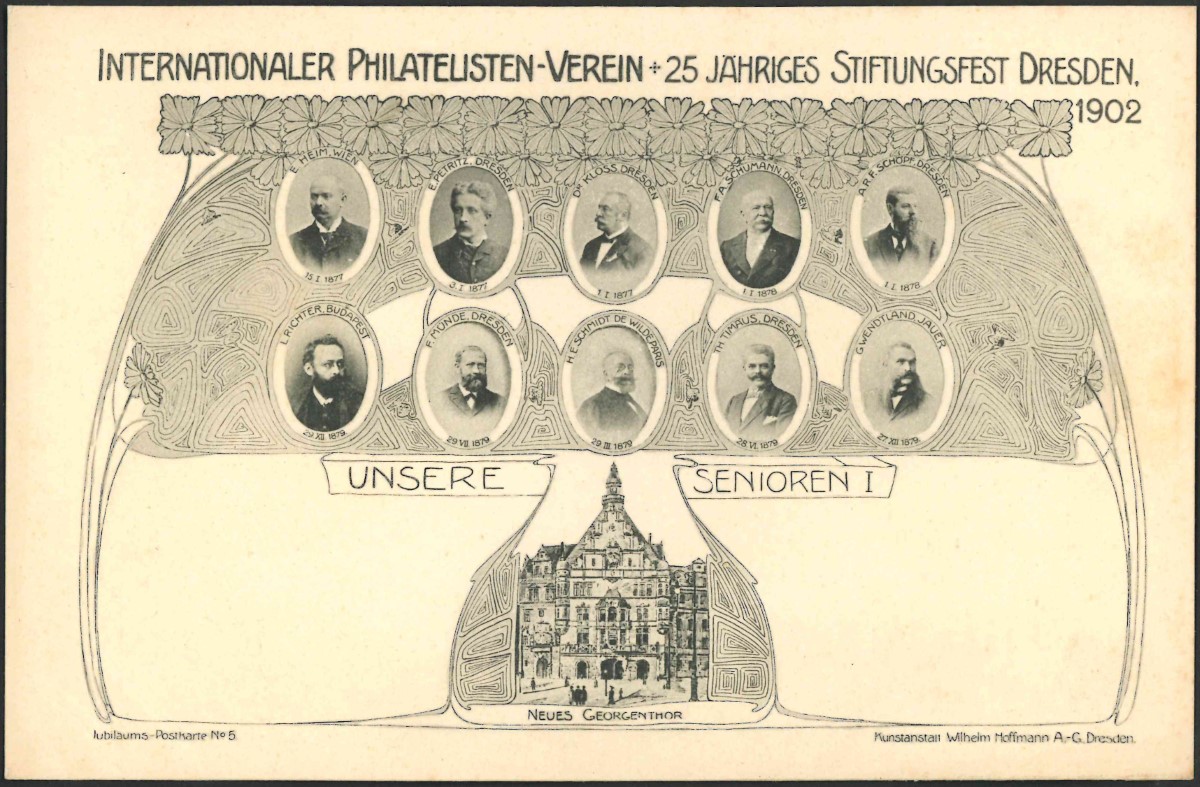 INTERNATIONALER PHILATELISTEN-VEREIN + 25 JÄHRIGES STIFTUNGSFEST DRESDEN,
1902
E. HEIM, WIEN
15. I. 1877
E. PEIRITZ, DRESDEN
3. I. 1877
DR KLOSS DRESDEN
1. I. 1877
F.A. SCHUMANN, DRESDEN
1. I. 1878
A.R.F. SCHÖPF, DRESDEN
1. I. 1878
L. RICHTER, BUDAPEST
29 XII. 1879
F. MUNDE, DRESDEN
29 VII. 1879
H.E. SCHMIDT DE WILDE PARIS
29 III. 1879
TH TIMÄUS, DRESDEN
28 VI. 1879
G WENDTLAND, JAUER
27 XII 1879
UNSERE SENIOREN I
NEUES GEORGENTHOR
Jubiläums-Postkarte No 5.
Kunstanstalt Wilhelm Hoffmann A.-G. Dresden.